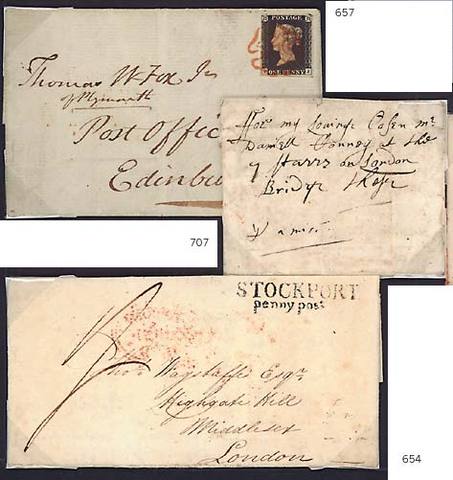 657
POSTAGE
ONE PENNY
Thomas W Fox Jr
of Plymouth
Post Offic
Edinbu
For my Louinge Cosen mr
Daniell
7 Starrs on London
Bridge these
707
STOCKPORT
penny post
Wagstaffe Esqr
Highgate Hill
Middlesex
London
654